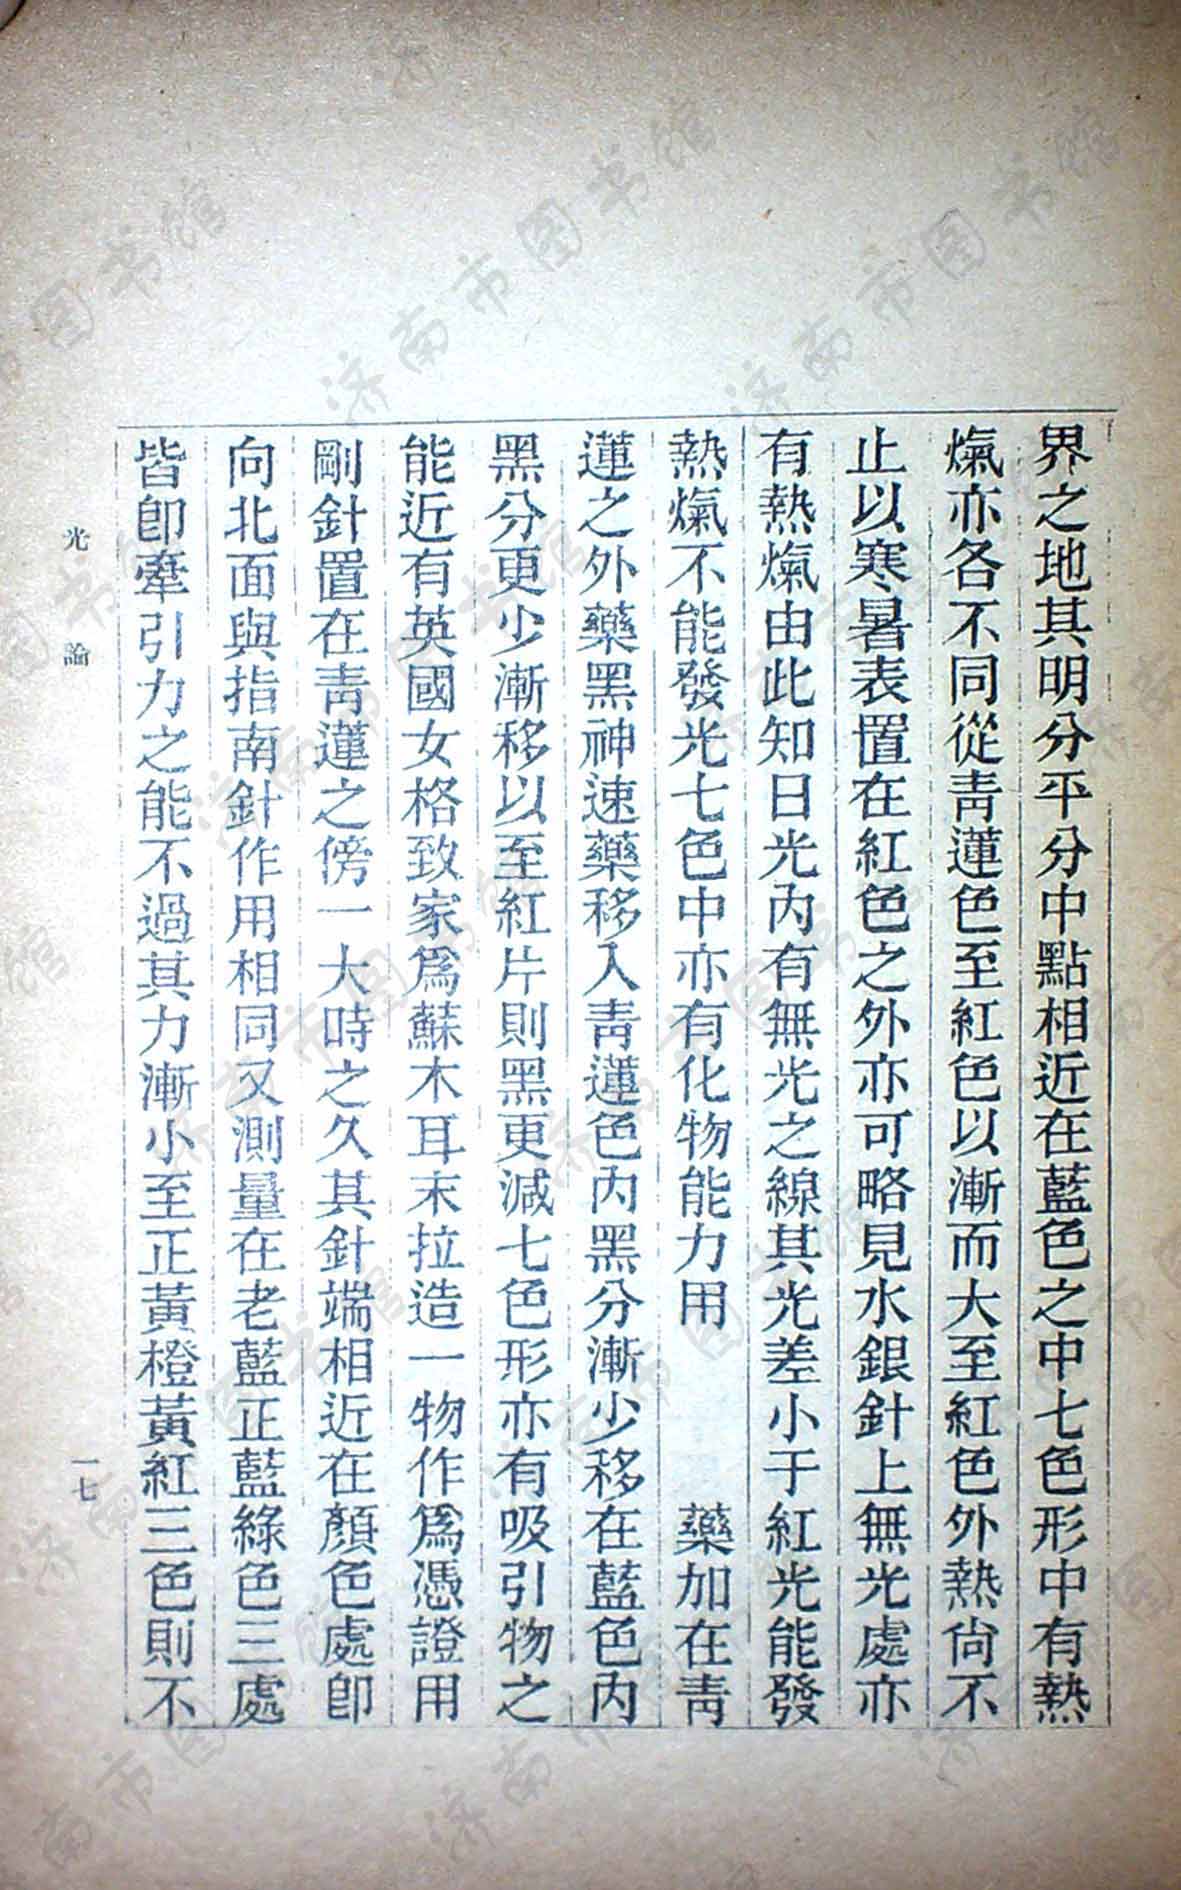 界之地其明分平分中點相近在藍色之中七色形中有熱
㷉亦各不同從靑蓮色至紅色以漸而大至紅色外熱尙不
止以寒暑表置在紅色之外亦可略見水銀針上無光處亦
有熱㷉由此知日光內有無光之線其光差小于紅光能發
熱㷉不能發光七色中亦有化物能力用 藥加在靑
蓮之外藥黑神速藥移入靑蓮色內黑分漸少移在藍色內
黑分更少漸移以至紅片則黑更減七色形亦有吸引物之
能近有英國女格致家爲蘇木耳末拉造一物作爲憑證用
剛針置在靑蓮之傍一大時之久其針端相近在顏色處卽
向北面與指南針作用相同又測量在老藍正藍綠色三處
皆卽牽引力之能不過其力漸小至正黃橙黃紅三色則不
光論
一七
济南市图书馆